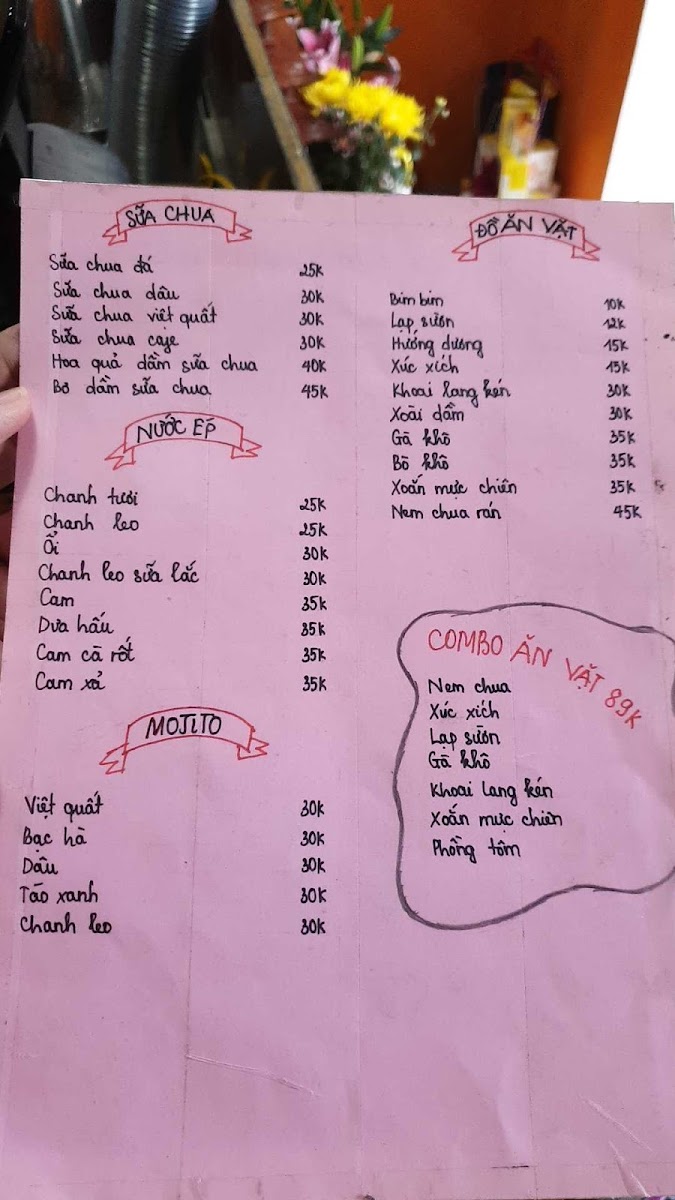 SỮA CHUA
Sữa chua đá 25K
Sữa chua dâu 30K
Sữa chua việt quất 30K
Sữa chua cafe 30K
Hoa quả dầm sữa chua 40K
Bơ dầm sữa chua 45K
NƯỚC ÉP
Chanh tươi 25K
Chanh leo 25K
Ổi 30K
Chanh leo sữa lắc 30K
Cam 35K
Dưa hấu 35K
Cam cà rốt 35K
Cam xả 35K
MOJITO
Việt quất 30K
Bạc hà 30K
Dâu 30K
Táo xanh 30K
Chanh leo 30K
ĐỒ ĂN VẶT
Bim bim 10K
Lạp sườn 12K
Hướng dương 15K
Xúc xích 15K
Khoai lang kén 30K
Xoài dầm 30K
Gà khô 35K
Bò khô 35K
Xoắn mực chiên 35K
Nem chua rán 45K
COMBO ĂN VẶT 89K
Nem chua
Xúc xích
Lạp sườn
Gà khô
Khoai lang kén
Xoắn mực chiên
Phồng tôm